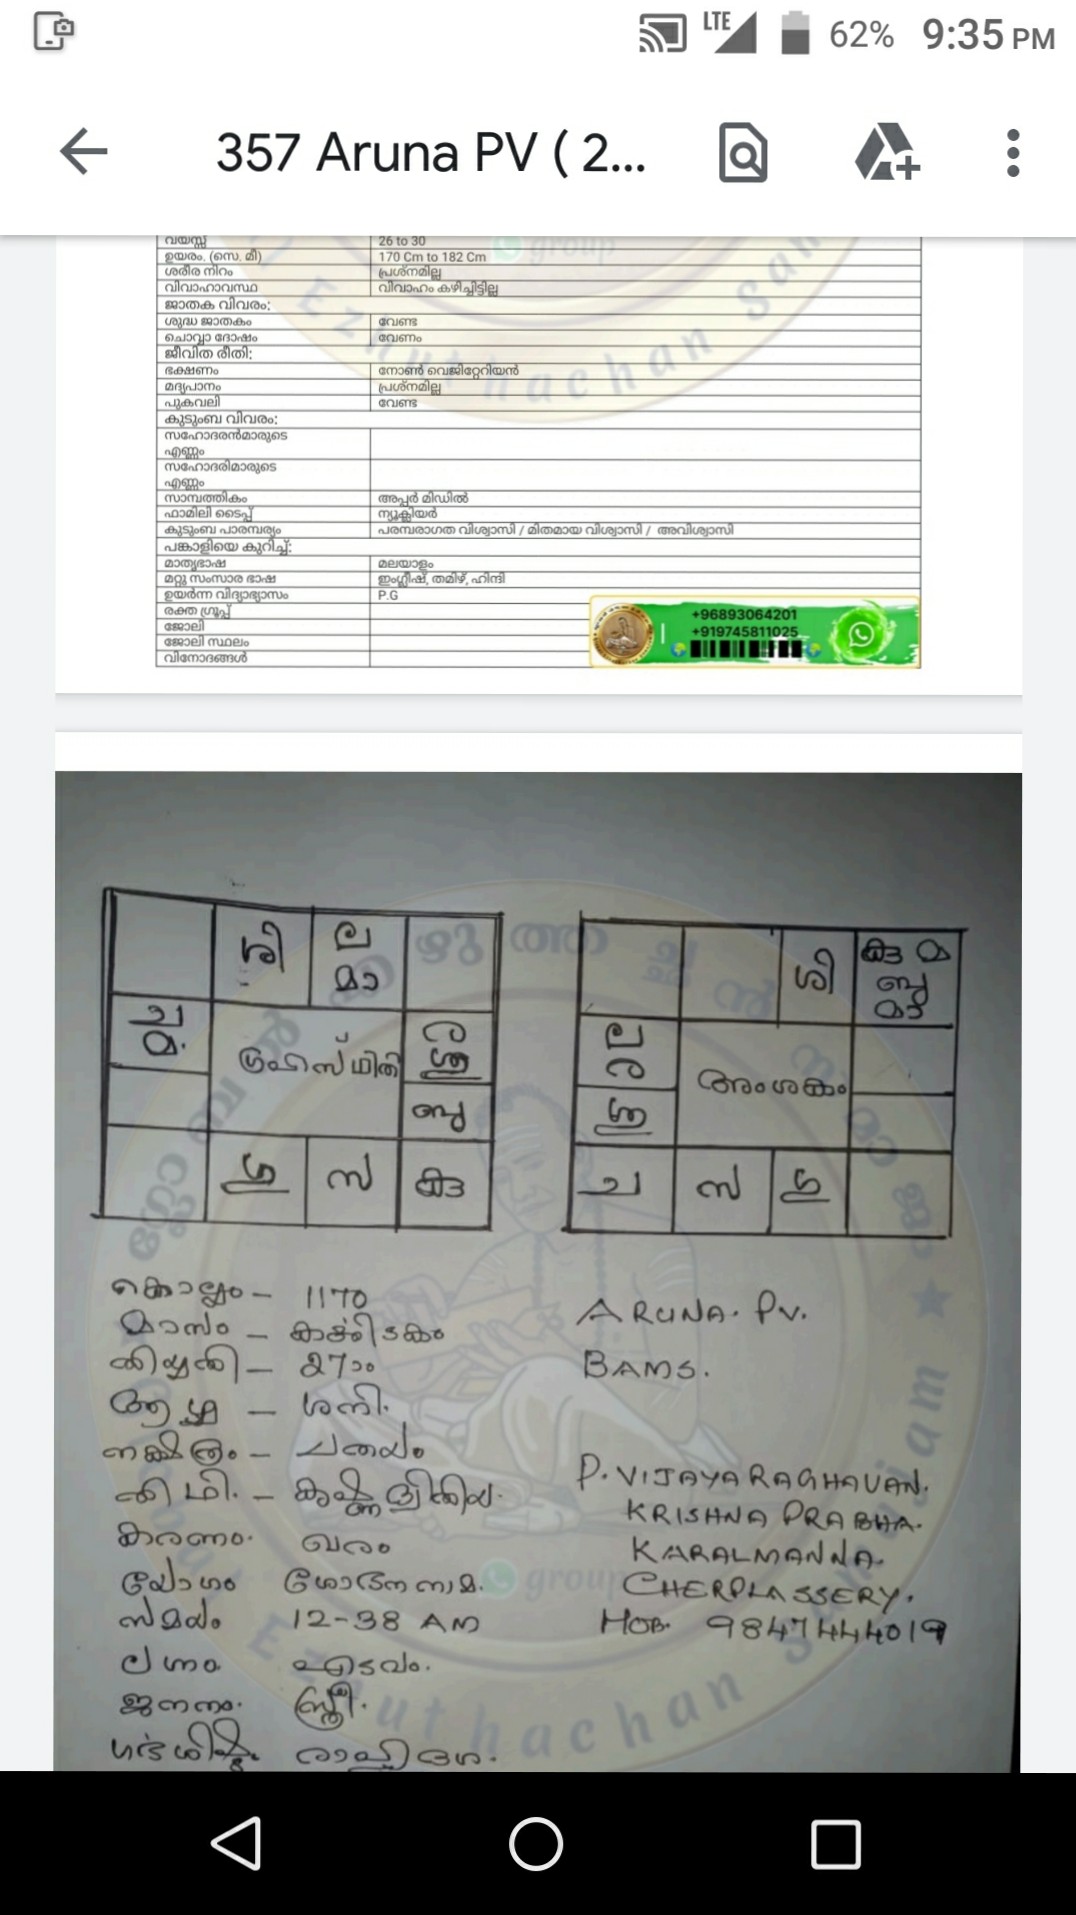 LTE 62% 9:35 PM
357 Aruna PV ( 2...
വയസ്സ് 26 to 30
ഉയരം. (സെ. മീ) 170 Cm to 182 Cm
ശരീര നിറം പ്രശ്നമില്ല
വിവാഹാവസ്ഥ വിവാഹം കഴിച്ചിട്ടില്ല
ജാതക വിവരം:
ശുദ്ധ ജാതകം വേണ്ട
ചൊവ്വാ ദോഷം വേണം
ജീവിത രീതി:
ഭക്ഷണം നോൺ വെജിറ്റേറിയൻ
മദ്യപാനം പ്രശ്നമില്ല
പുകവലി വേണ്ട
കുടുംബ വിവരം:
സഹോദരൻമാരുടെ
എണ്ണം
സഹോദരിമാരുടെ
എണ്ണം
സാമ്പത്തികം അപ്പർ മിഡിൽ
ഫാമിലി ടൈപ്പ് ന്യൂക്ലിയർ
കുടുംബ പാരമ്പര്യം പരമ്പരാഗത വിശ്വാസി / മിതമായ വിശ്വാസി / അവിശ്വാസി
പങ്കാളിയെ കുറിച്ച്:
മാതൃഭാഷ മലയാളം
മറ്റു സംസാര ഭാഷ ഇംഗ്ലീഷ്, തമിഴ്, ഹിന്ദി
ഉയർന്ന വിദ്യാഭ്യാസം P.G
രക്ത ഗ്രൂപ്പ്
ജോലി
ജോലി സ്ഥലം
വിനോദങ്ങൾ
+96893064201
+919745811025
group
Ezhuthachan
ശി ല
മാ
ച
മ.
ഗ്രഹസ്ഥിതി
ര
ശു
ബു
ഗു സ കു
ശി കു മ
ബു
മാ
ല
ര
അംശകം
ശു
ച സ ഗു
കൊല്ലം - 1170
മാസം - കർക്കിടകം
തിയ്യതി - 27ാം
ആഴ്ച - ശനി.
നക്ഷത്രം - ചതയം
തിഥി. - കൃഷ്ണദ്വിതീയ.
കരണം. ഖരം
യോഗം ശോഭനനാമ.
സമയം 12-38 AM
ലഗ്നം എടവം.
ജനനം. സ്ത്രീ.
ഗർഭശിഷ്ടം രാഹുദശ.
ARUNA. PV.
BAMS.
P. VIJAYARAGHAVAN.
KRISHNA PRABHA.
KARALMANNA.
CHERPLASSERY.
MOB. 9847444019
group
Ezhuthachan Samajam